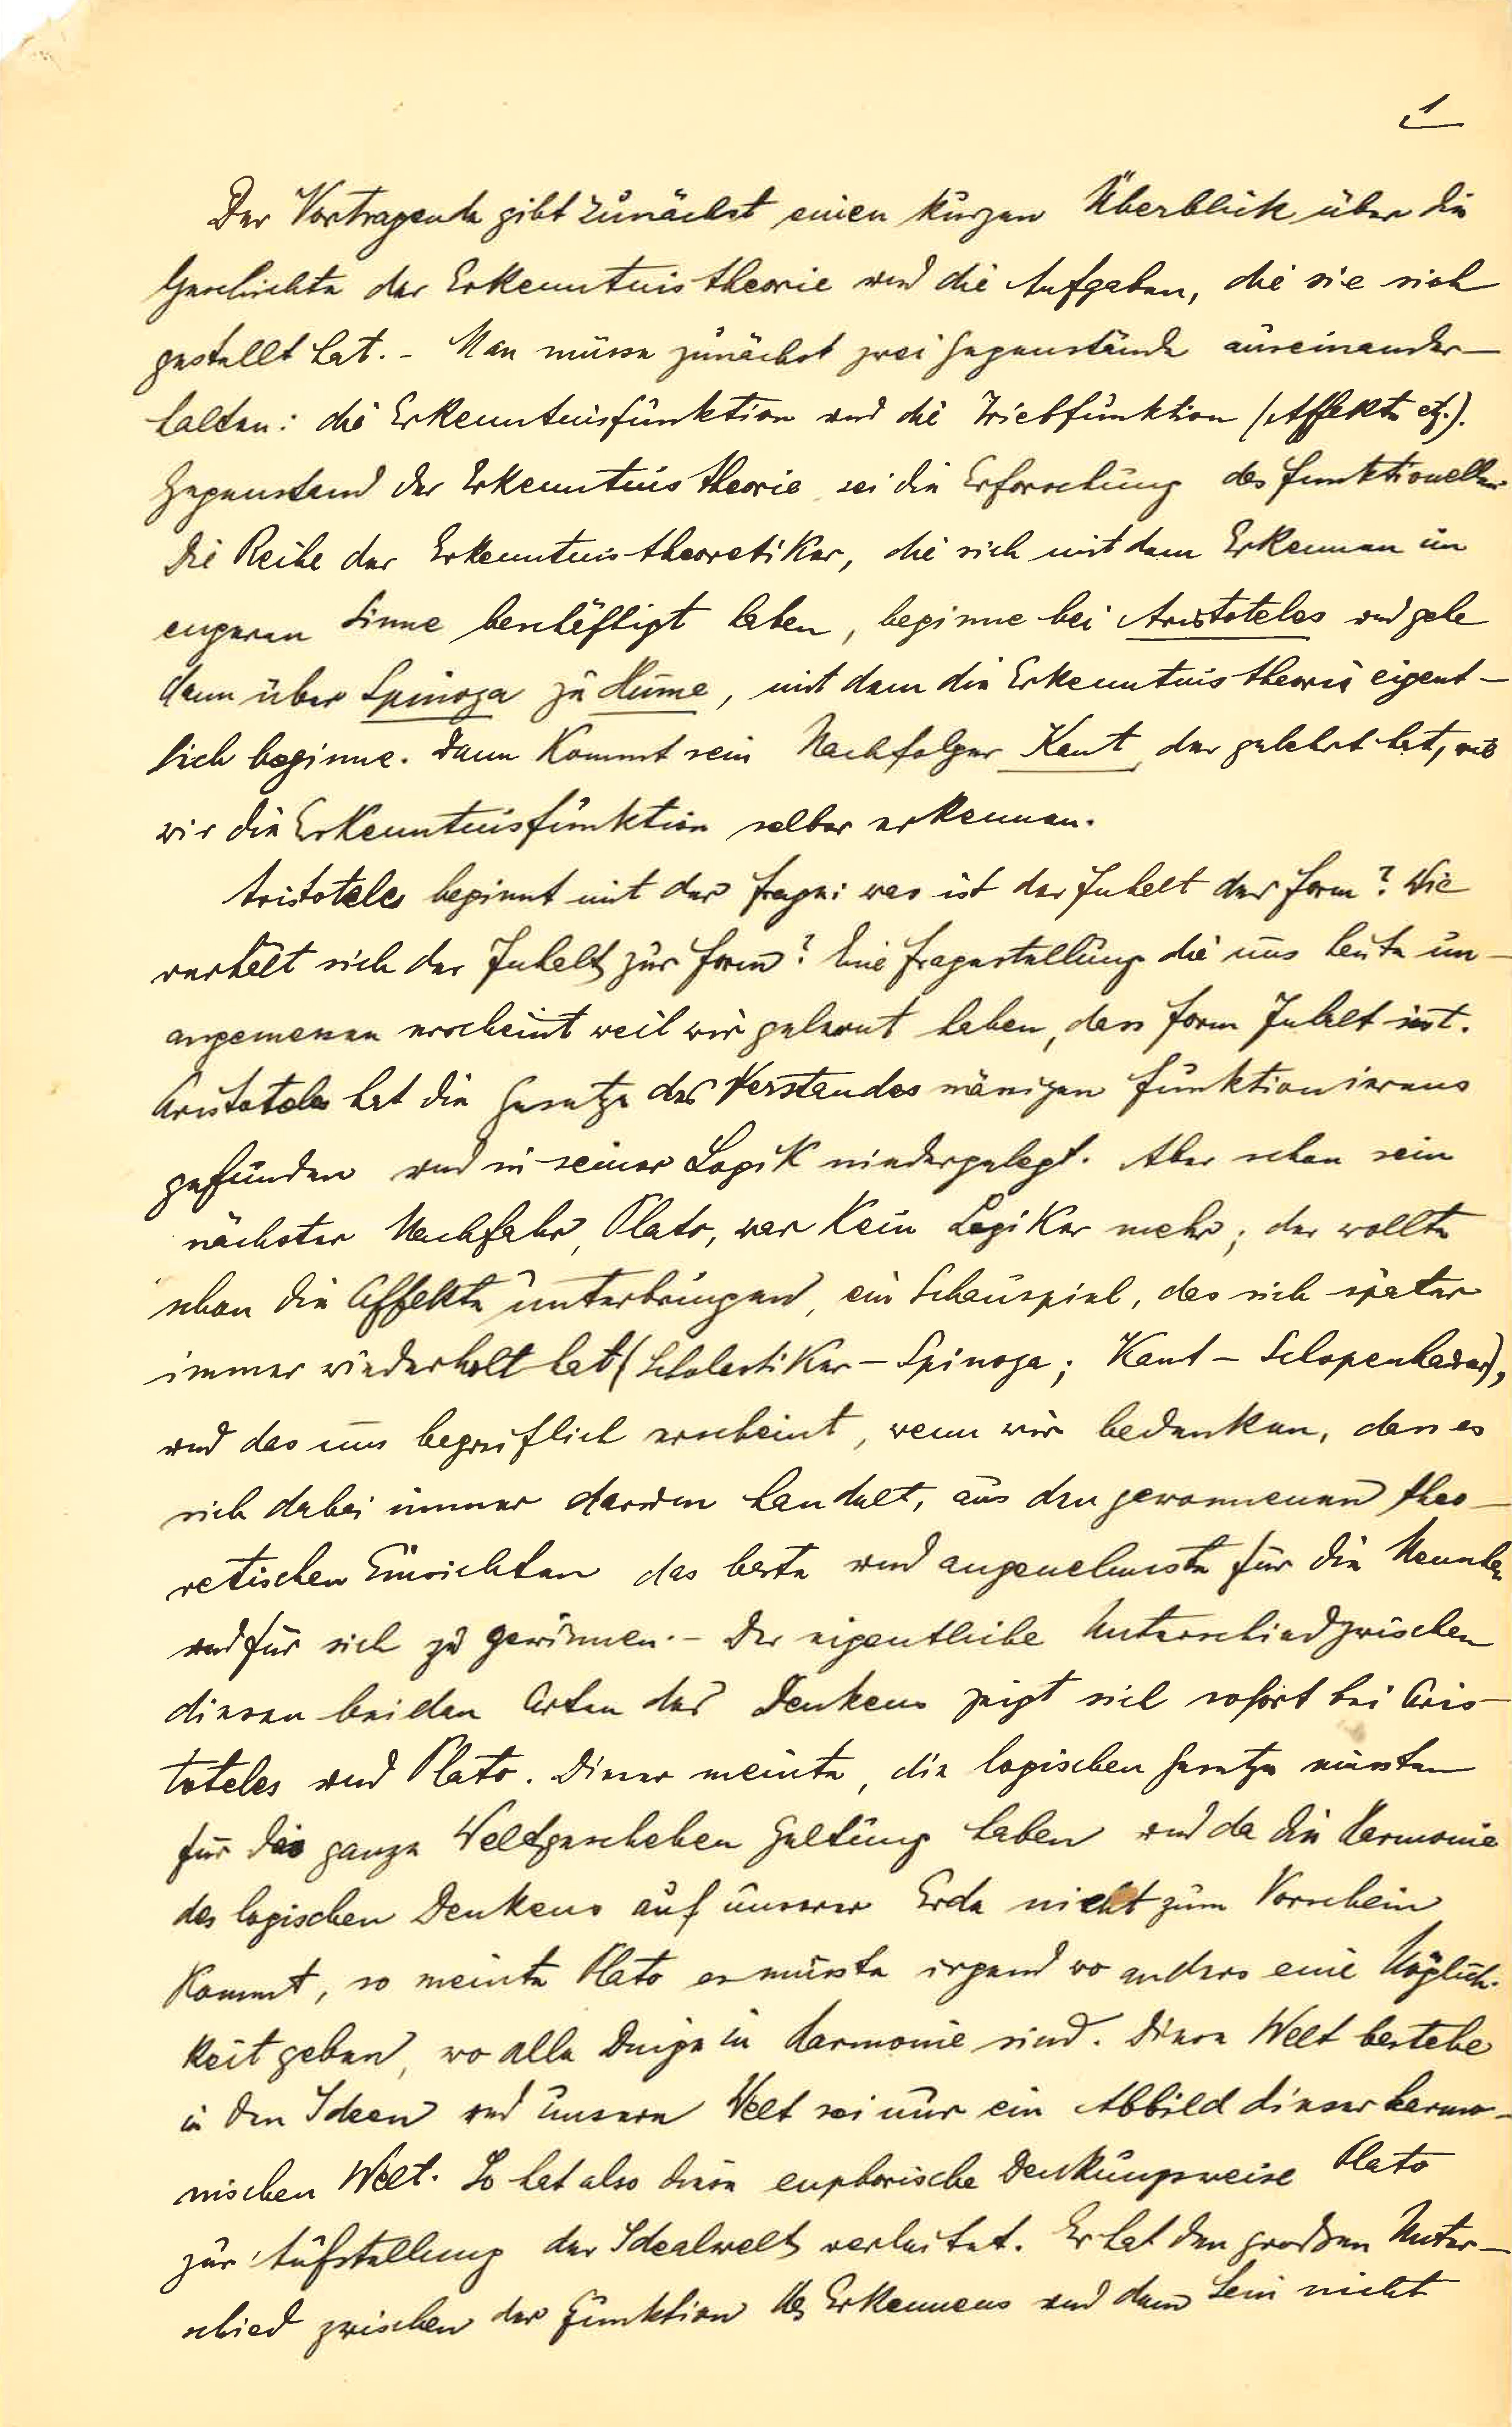 1
Der Vortragende gibt zunächst einen kurzen Überblick über die
Geschichte der Erkenntnistheorie und die Aufgaben, die sie sich
gestellt hat. - Man müsse zunächst zwei Gegenstände auseinander-
halten: die Erkenntnisfunktion und die Triebfunktion (Affekte etz.).
Gegenstand der Erkenntnistheorie sei die Erforschung des funktionellen.
Die Reihe der Erkenntnistheoretiker, die sich mit dem Erkennen im
engeren Sinne beschäftigt haben, beginne bei Aristoteles und gehe
dann über Spinoza zu Hume, mit dem die Erkenntnistheorie eigent-
lich beginne. Dann kommt sein Nachfolger Kant, der gelehrt hat, wie
wir die Erkenntnisfunktion selber erkennen.
Aristoteles beginnt mit der Frage: was ist der Inhalt der Form? Wie
verhält sich der Inhalt zur Form? Eine Fragestellung die uns heute un-
angemessen erscheint weil wir gelernt haben, dass Form Inhalt ist.
Aristoteles hat die Gesetze des Verstandesmässigen Funktionierens
gefunden und in seiner Logik niedergelegt. Aber schon sein
nächster Nachfahr, Plato, war kein Logiker mehr; der wollte
schon die Affekte unterbringen, ein Schauspiel, das sich später
immer wiederholt hat (Scholastiker - Spinoza; Kant - Schopenhauer),
und das uns begreiflich erscheint, wenn wir bedenken, dass es
sich dabei immer darum handelt, aus den gewonnenen theo-
retischen Einsichten das beste und angenehmste für die Menschen
und für sich zu gewinnen. - Der eigentliche Unterschied zwischen
diesen beiden Arten des Denkens zeigt sich sofort bei Aris-
toteles und Plato. Dieser meinte, die logischen Gesetze müssten
für das ganze Weltgeschehen Geltung haben und da die Harmonie
des logischen Denkens auf unserer Erde nicht zum Vorschein
kommt, so meinte Plato es müsste irgend wo anders eine Möglich-
keit geben, wo alle Dinge in Harmonie sind. Diese Welt bestehe
in den Ideen und unsere Welt sei nur ein Abbild dieser harmo-
nischen Welt. So hat also diese euphorische Denkungsweise Plato
zur Aufstellung der Idealwelt verleitet. Er hat den grossen Unter-
schied zwischen der Funktion des Erkennens und dem Sein nicht